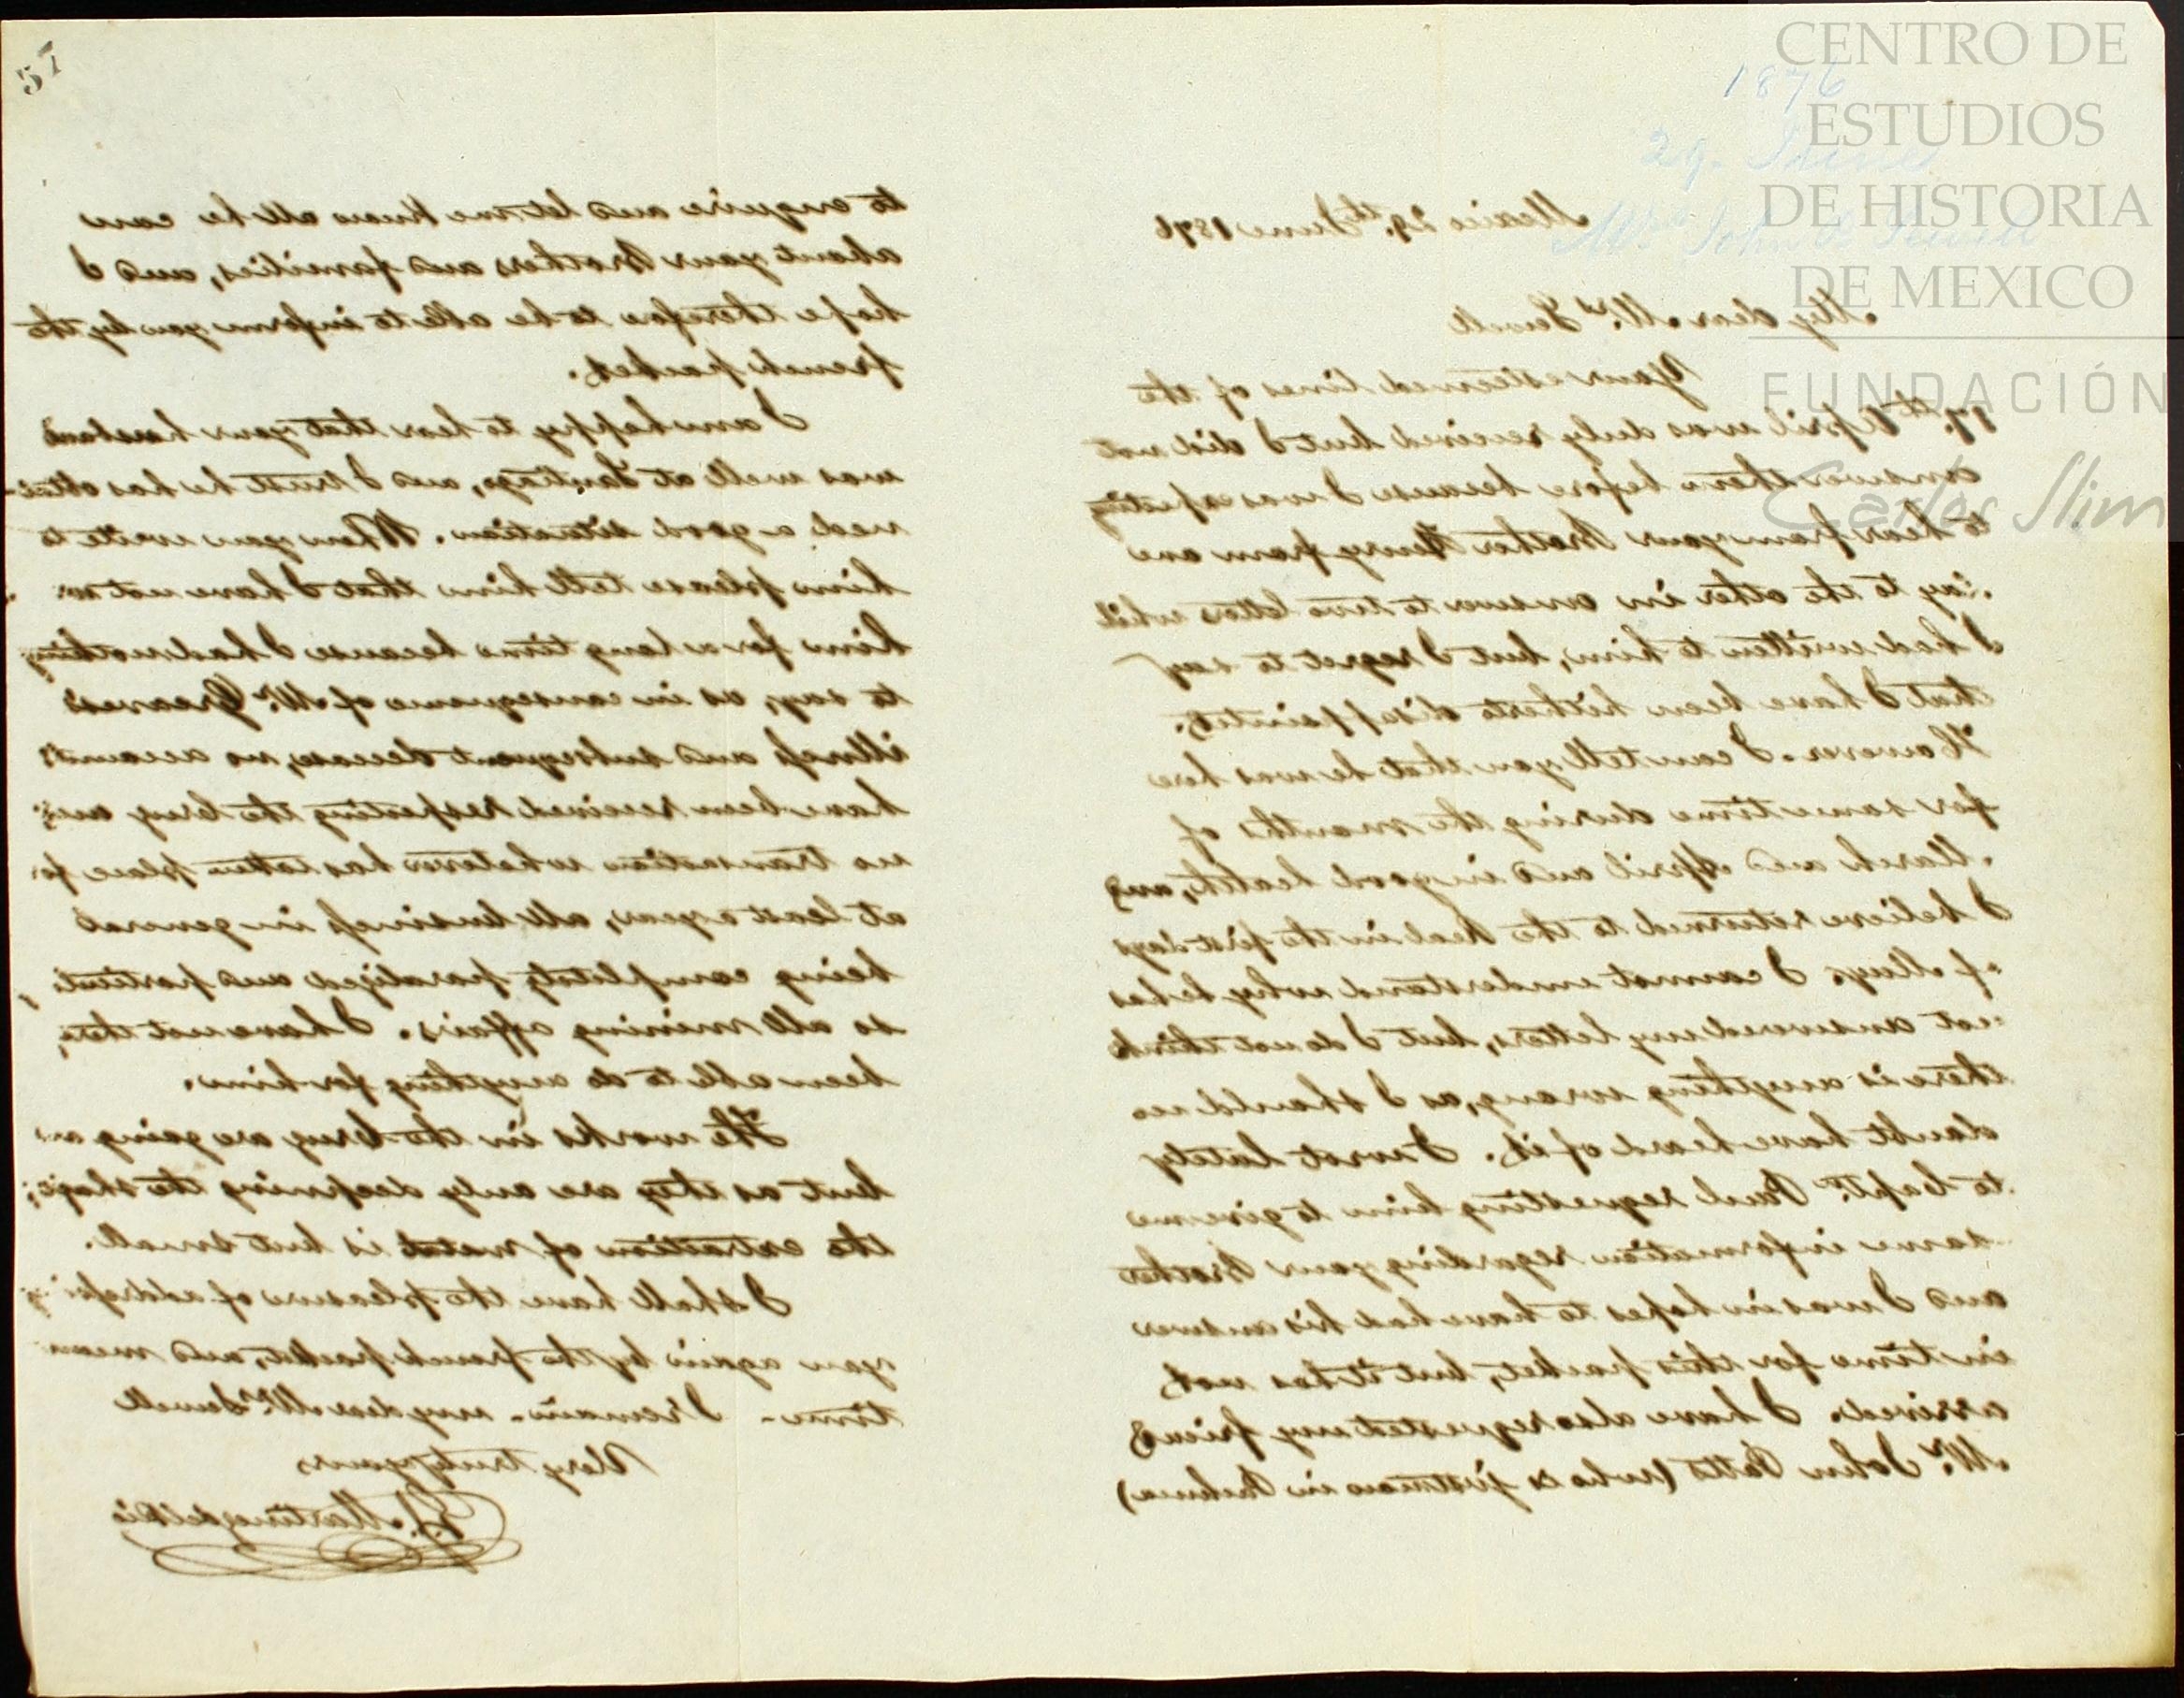 57
1876
29. June
Mrs John Sewell
CENTRO DE
ESTUDIOS
DE HISTORIA
DE MEXICO
FUNDACIÓN
Carlos Slim
Mexico 29th June 1876
My dear Mrs Sewell
Your esteemed lines of the
17th April was duly received but I did not
answer them before because I was expecting
to hear from your Brother Henry from one
day to the other in answer to two letters which
I had written to him, but I regret to say
that I have been hitherto disappointed.
However. I can tell you that he was here
for some time during the months of
March and April and in good health, and
I believe returned to the Real in the first days
of May. I cannot understand why he has
not answered my letters, but I do not think
there is anything wrong, as I should no
doubt have heard of it. I wrot lately
to Captn. Paul requesting him to give me
some information regarding your Brother
and I was in hopes to have had his answer
in time for this packet, but it has not
arrived. I have also requested my friend
Mr. John Potts (who is just now in Pachuca)
to enquire and let me know all he can
about your Brothers and families, and I
hope therefore to be able to inform you by the
french packet.
I am happy to hear that your husband
was well at Santiago, and I trust he has obtai-
ned a good situation. When you write to
him please tell him that I have not
him for a long time because I had nothing
to say, as in consequence of Mr. Greaves
illness and subsequent decease, no accounts
have been received respecting the and
no transaction whatever has taken place for
at least a year, all business in general
being completely paralized and
so all mining affairs. I have not then
been able to do anything for him.
The works in the are going on
but as they are only deepening the shaft;
the extraction of metal is but small.
I shall have the pleasure of addressing
you again by the french packet, and mean
time - I remain - my dear Mrs Sewell
Very truly yours
Martinez del Rio